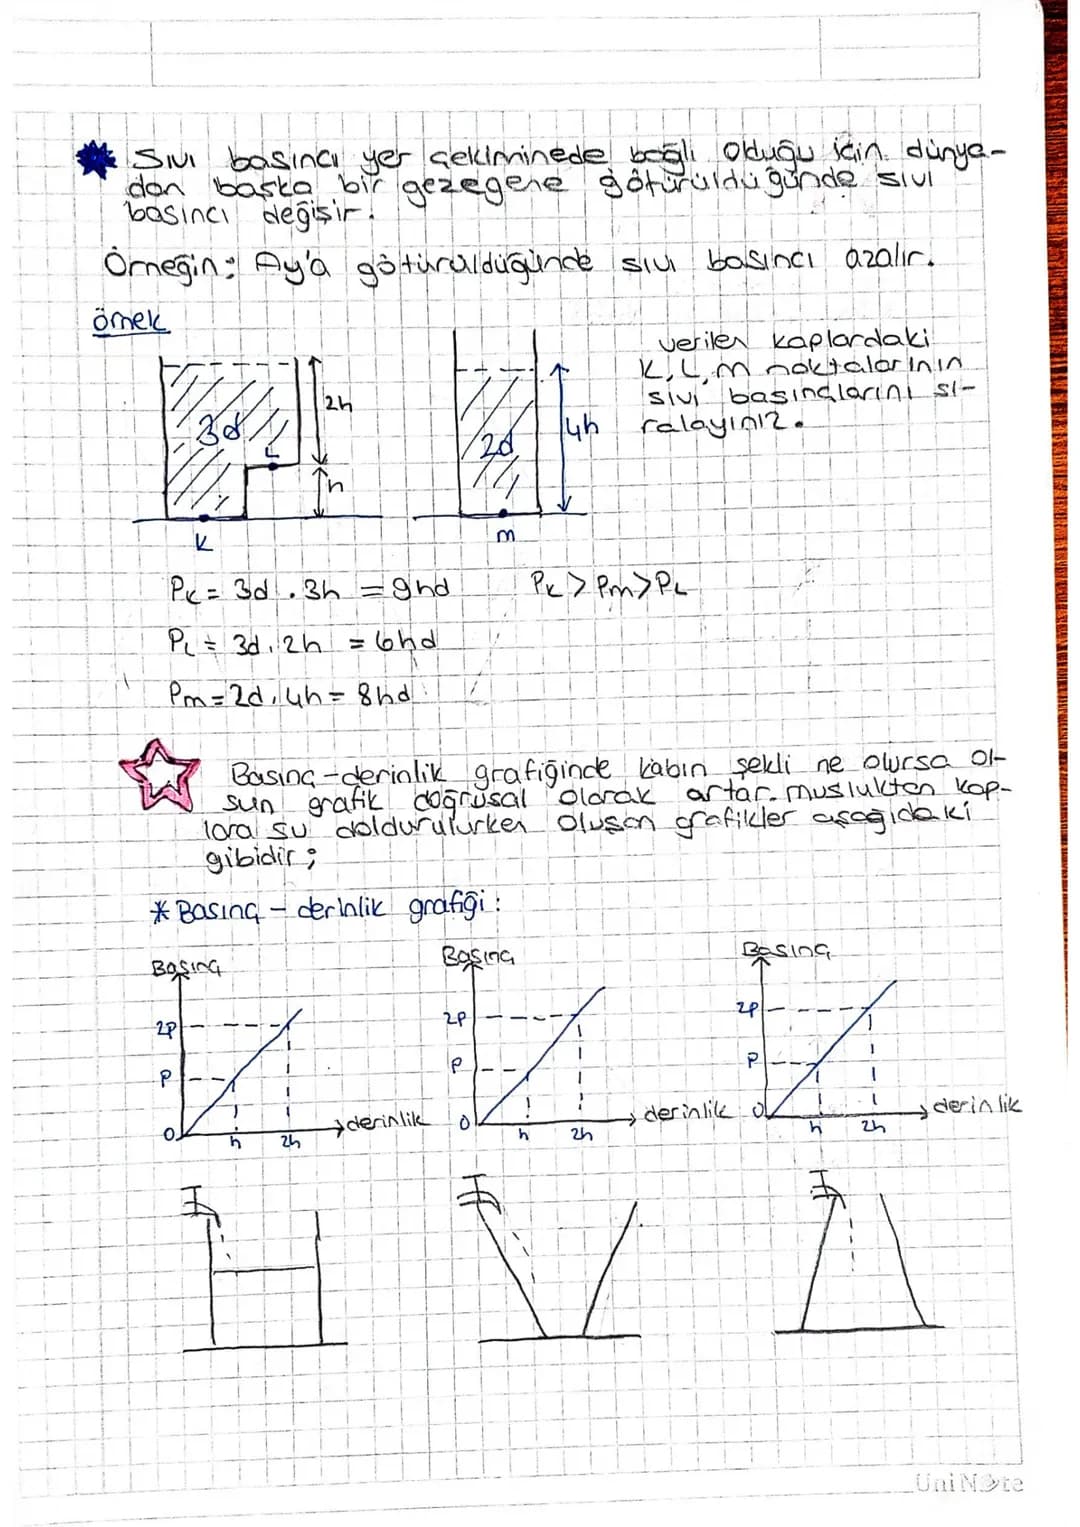 Sıvı basıncı yer çekiminede bağlı olduğu için dünya-
dan başka bir gezegene götürüldüğünde sıvı
basıncı değişir.
Örneğin: Ay'a götürüldüğünde sıvı basıncı azalır.
örnek
verilen kaplardaki
K, L, m noktalarının
sıvı basınçlarını sı-
ralayınız.
3d
L
2h
h
K
2d
4h
m
PK = 3d . 3h = 9hd
PK > Pm > PL
PL = 3d . 2h = 6hd
Pm = 2d . 4h = 8hd
Basınç-derinlik grafiğinde kabın şekli ne olursa ol-
sun grafik doğrusal olarak artar. musluktan kap-
lara su doldurulurken oluşan grafikler aşağıdaki
gibidir;
* Basınç - derinlik grafiği:
Basınç
2P
P
0
h
2h
derinlik
Basınç
2P
P
0
h
2h
derinlik
Basınç
2P
P
0
h
2h
derinlik
UniNote